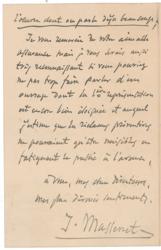 l'œuvre dont on parle déjà beaucoup,
Je vous remercie de votre aimable
assurance mais je vous serais aussi
très reconnaissant si vous pouviez
ne pas trop faire parler d'un
ouvrage dont la 1ère représentation
est encore bien éloignée et auquel
j'estime que des réclames prématurées
ne pourraient qu'être nuisibles en
fatiguant le public à l'avance,
à vous, mon cher Directeur,
mes plus dévoués sentiments.
J. Massenet